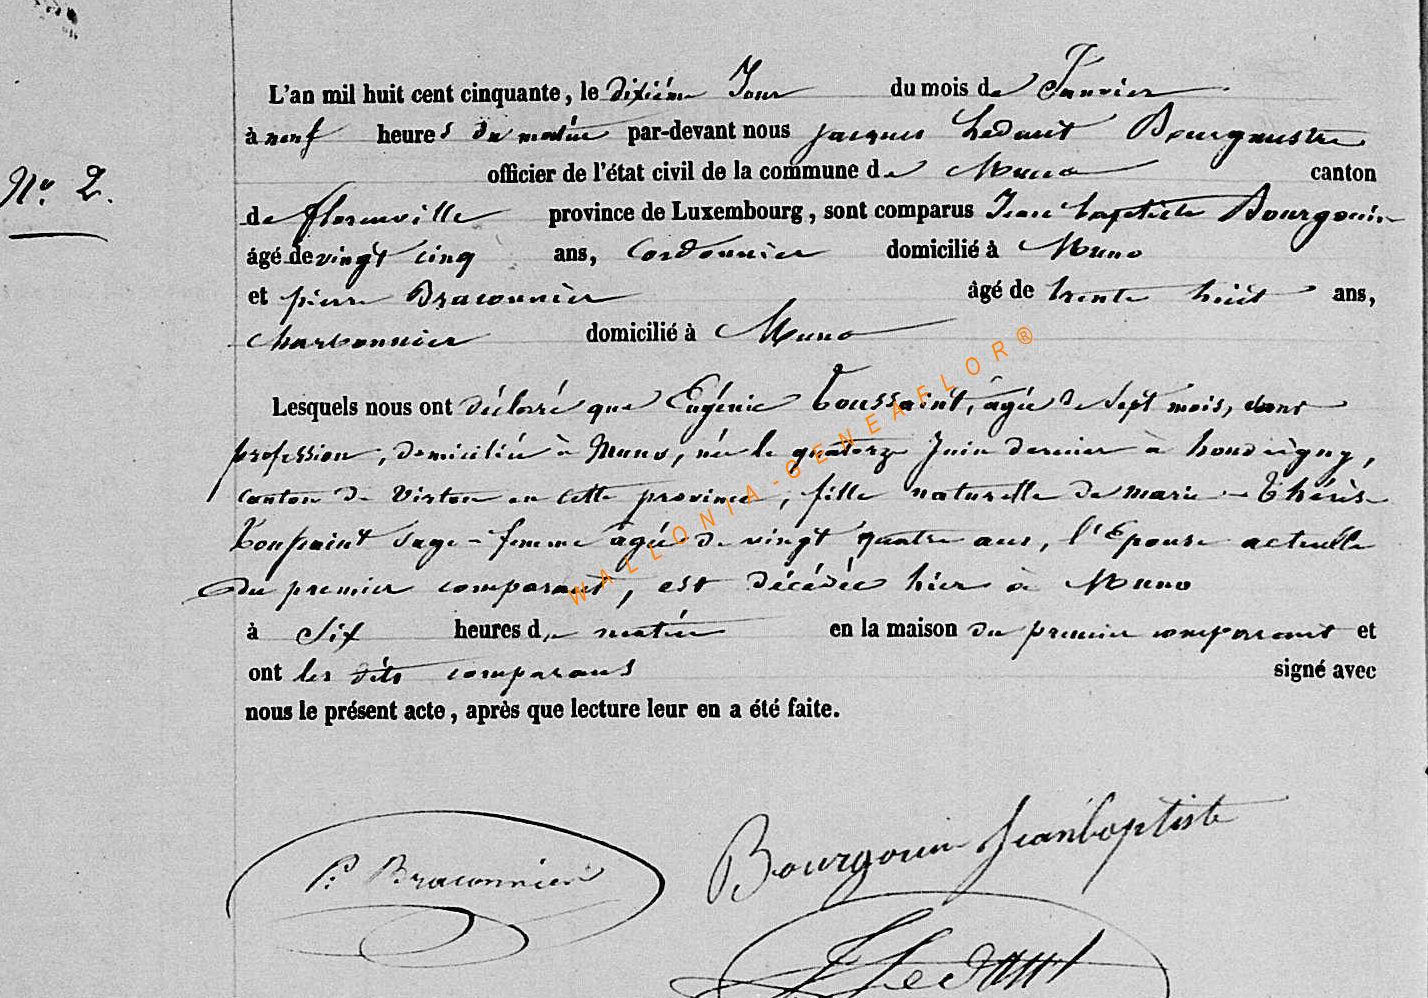 L'an mil huit cent cinquante, le dixiéme Jour du mois de Janvier
à neuf heures du matin par-devant nous jacques Ledant Bourgmestre
officier de l'état civil de la commune de Muno canton
N.º 2.
de florenville province de Luxembourg, sont comparus Jean baptiste Bourgouin
âgé de vingt cinq ans, Cordonnier domicilié à Muno
et pierre Braconnier âgé de trente huit ans,
charbonnier domicilié à Muno
Lesquels nous ont déclaré que Eugénie Toussaint, âgée de Sept mois, sans
profession, domiciliée à Muno, née le quatorze Juin dernier à houdrigny,
canton de Virton en cette province, fille naturelle de marie-Thérèse
Toussaint Sage-femme âgée de vingt quatre ans, l'Epouse actuelle
du premier comparant, est décédée hier à Muno
à Six heures du matin en la maison du premier comparant et
ont les dits comparans signé avec
nous le présent acte, après que lecture leur en a été faite.
WALLONIA-GENEAFLOR®
P: Braconnier
Bourgouin Jeanbaptiste
J Ledant